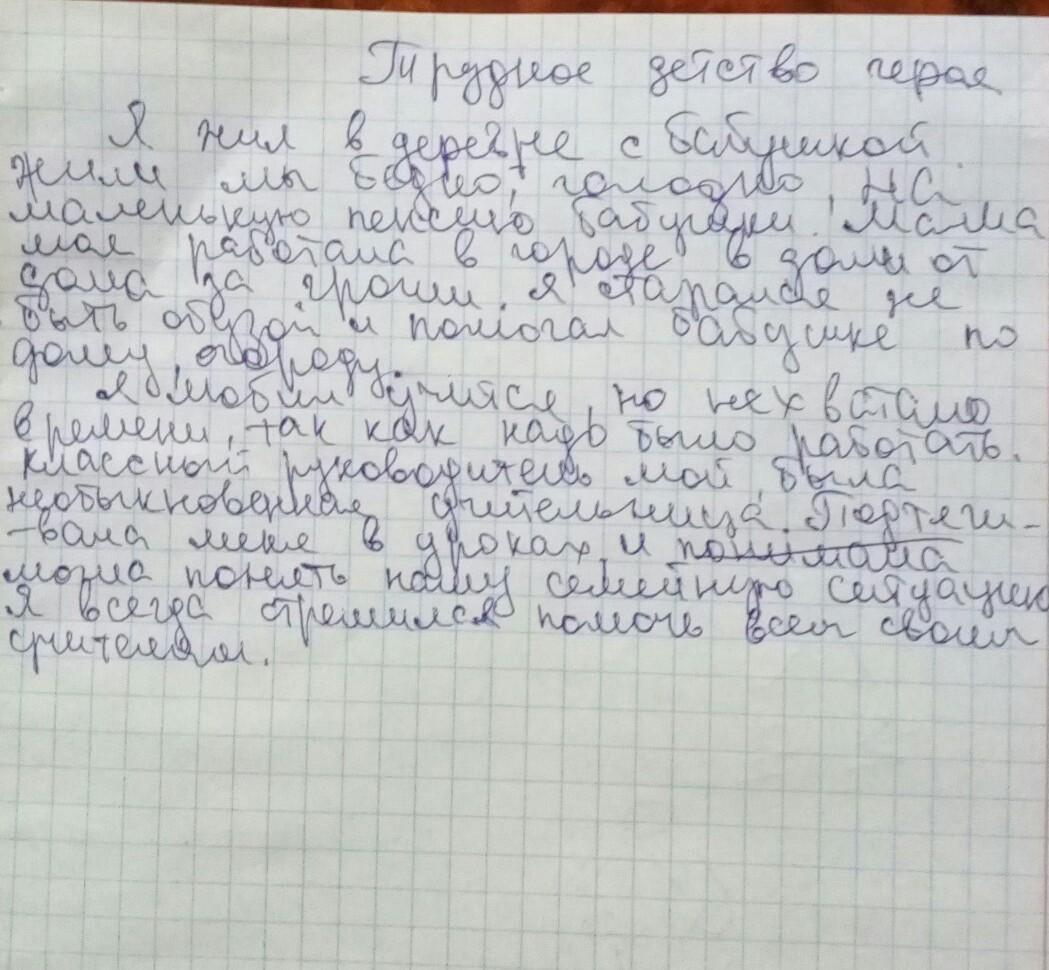 Трудное детство героя
Я жил в деревне с бабушкой.
Жили мы бедно, голодно, на
маленькую пенсию бабушки. Мама
моя работала в городе в дали от
дома за гроши. Я старался не
быть обузой и помогал бабушке по
дому, огороду.
Я любил учится, но нехватало
времени, так как надо было работать.
Классный руководитель мой, была
необыкновенная учительница. Подтяги-
-вала меня в уроках и понимала
могла понять нашу семейную ситуацию
Я всегда стремился помочь всем своим
учителям.